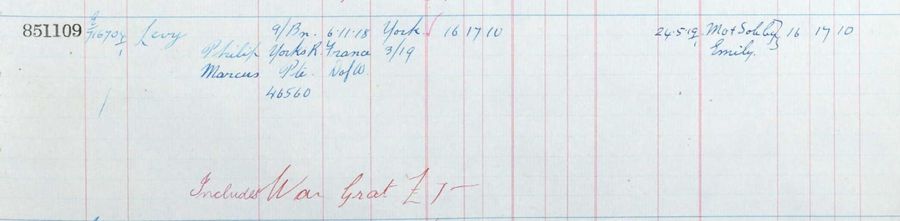 851109 Levy 9/Bn. 6.11.18 York £ 16 17 10 24.5.19 Mo & Sole Leg 16 17 10
Philip Yorks R. France 3/19 Emily.
Marcus Pte. D of W.
46560
Includes War Grat £7-